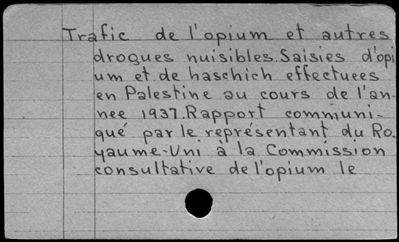 Trafic de l'opium et autres
drogues nuisibles. Saisies d'opi
um et de haschich effectuees
en Palestine au cours de l'an-
nee 1937. Rapport communi-
qué par le représentant du Ro-
yaume-Uni à la Commission
consultative de l'opium le